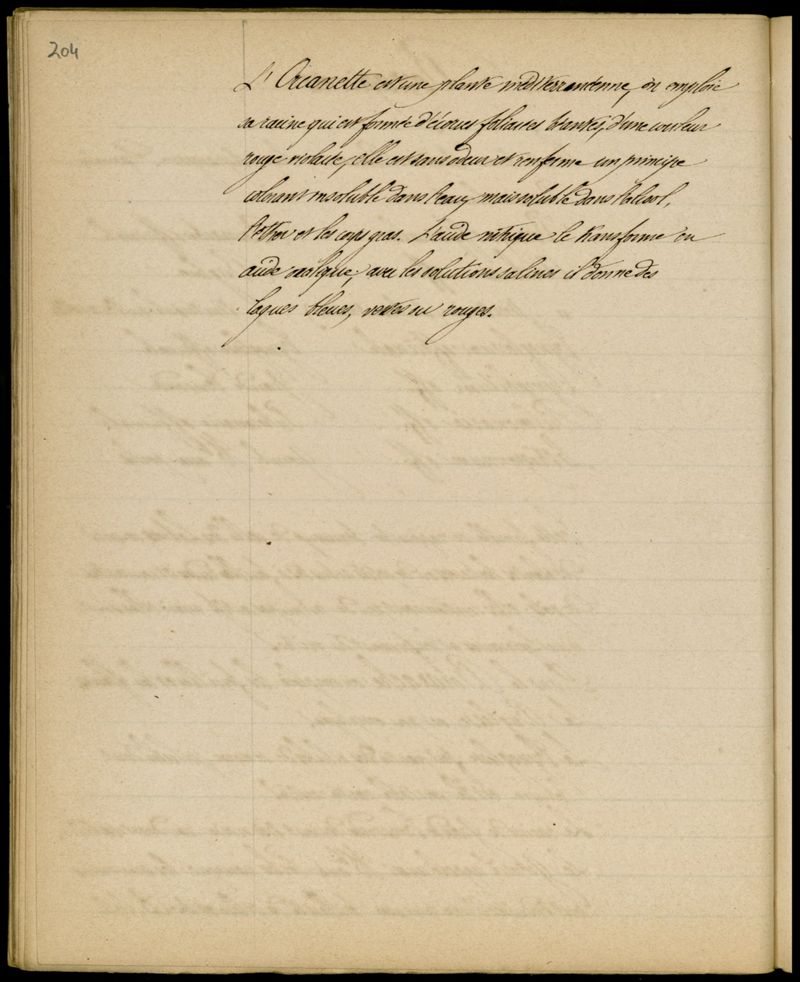 204
L'Orcanette est une plante méditerranéenne, on emploie
sa racine qui est formée d'écorces foliacées, d'une couleur
rouge violacée, elle est sans odeur et renferme un principe
colorant insoluble dans l'eau, mais soluble dans l'alcool,
l'éther et les corps gras. L'acide nitrique le transforme en
acide oxalique, avec les solutions salines il donne des
laques bleues, vertes ou rouges.